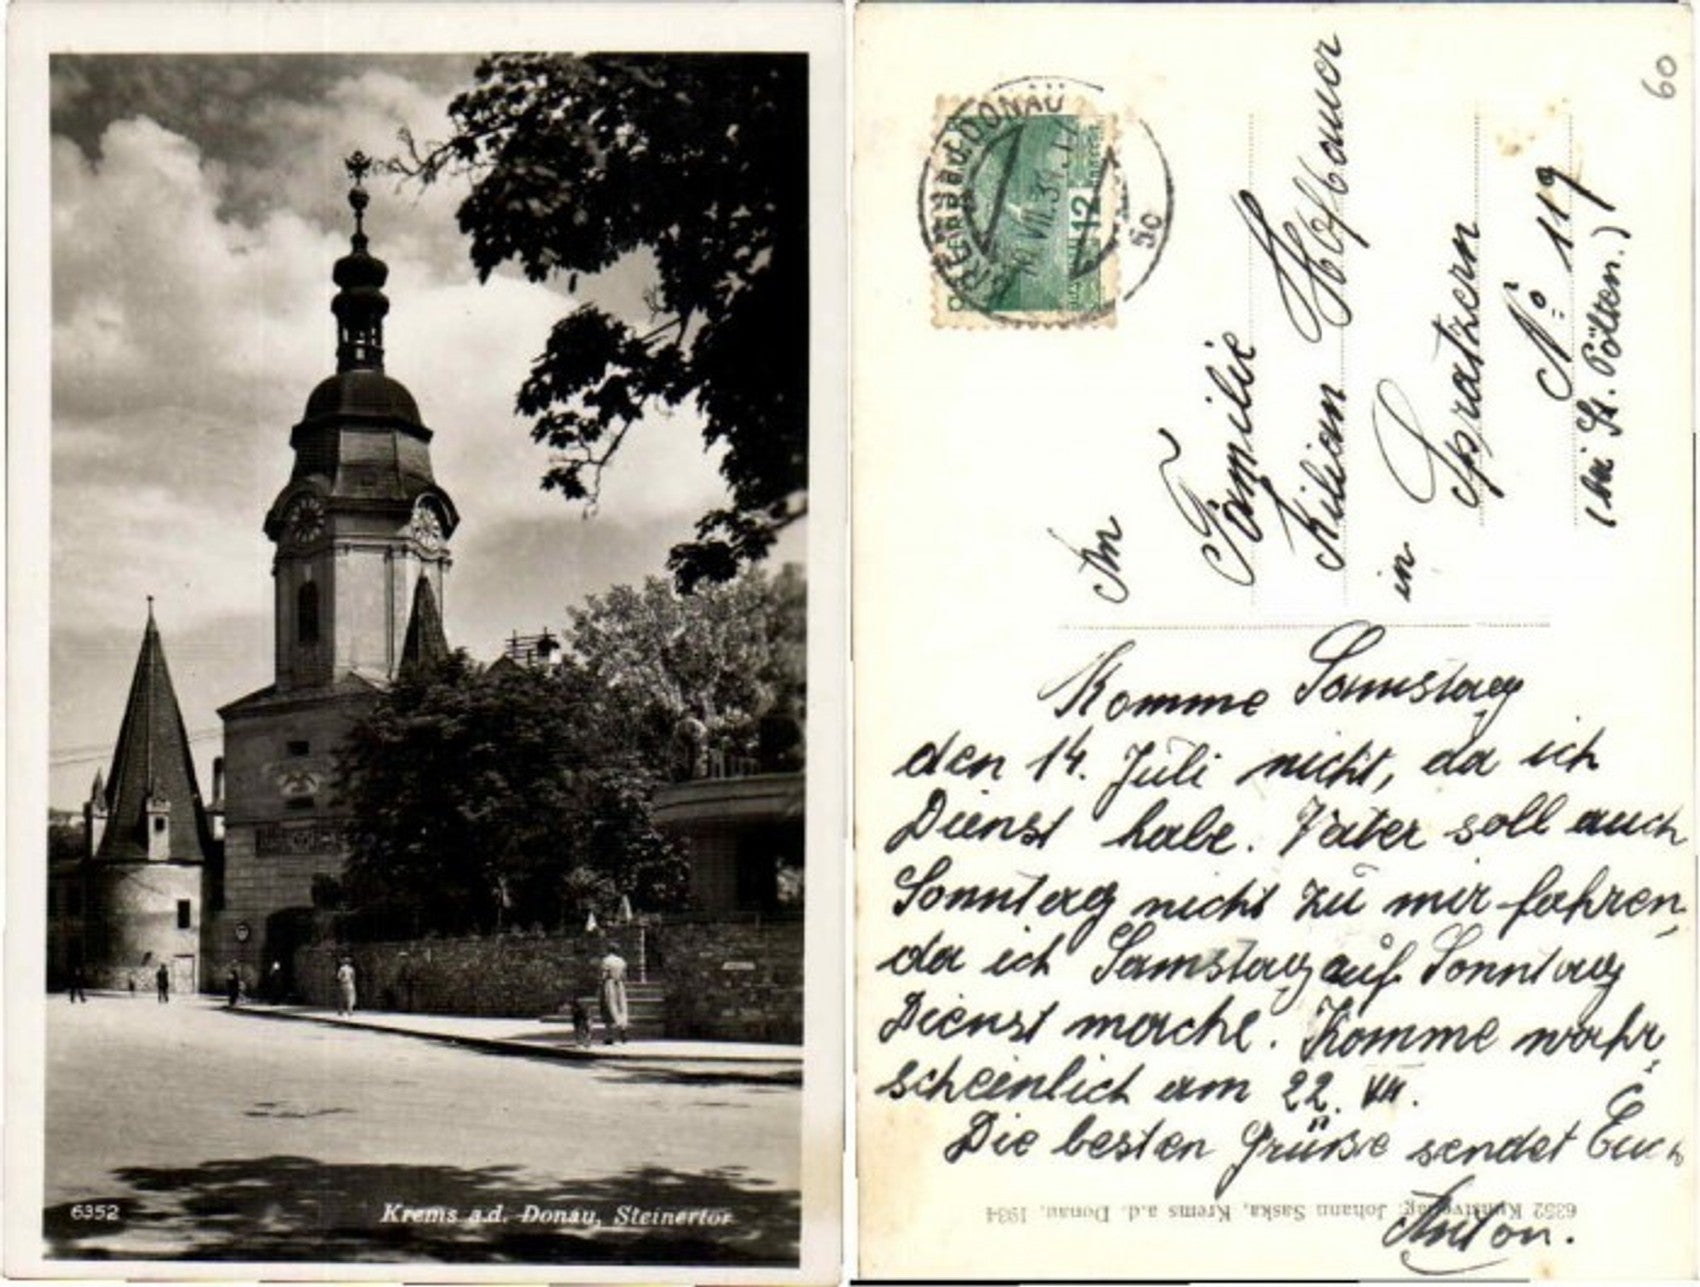 6352
Krems a.d. Donau, Steinertor
60
KREMS a.d. DONAU
VII. 34
5c
12
An
Familie
Kilian Hofbauer
in Spratzern
No 119
(bei St. Pölten.)
Komme Samstag
den 14. Juli nicht, da ich
Dienst habe. Vater soll auch
Sonntag nicht zu mir fahren,
da ich Samstag auf Sonntag
Dienst mache. Komme wahr-
scheinlich am 22. VII.
Die besten Grüße sendet Euch
Anton.
6352 Kunstverlag: Johann Saska, Krems a.d. Donau, 1934